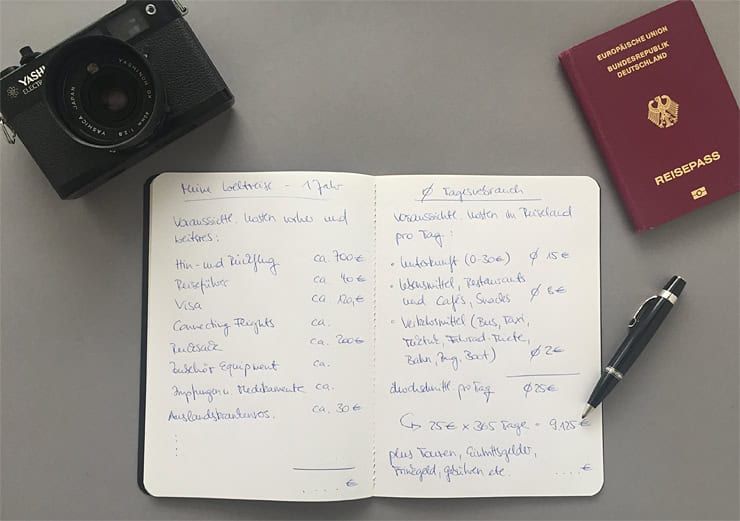 YASHI
ELECTR
YASHINON-DX
1:2.8
YASHICA JAPAN
EUROPÄISCHE UNION
BUNDESREPUBLIK
DEUTSCHLAND
REISEPASS
Meine Weltreise - 1 Jahr
Voraussichtl. Kosten vorher und
weiteres:
Hin- und Rückflug ca. 700 €
Reiseführer ca. 40 €
Visa ca. 120,- €
Connecting Flights ca.
Rucksack ca. 200 €
Zubehör Equipment ca.
Impfungen u. Medikamente ca.
Auslandskrankenvers. ca. 30 €
..... €
Ø Tagesverbrauch
Voraussichtl. Kosten im Reiseland
pro Tag:
• Unterkunft (0-30€) Ø 15 €
• Lebensmittel, Restaurants
und Cafés, Snacks Ø 8 €
• Verkehrsmittel (Bus, Taxi,
Tuktuk, Fahrrad-Miete,
Bahn, Zug, Boot) Ø 2 €
durchschnittl. pro Tag Ø 25 €
↳ 25 € x 365 Tage = 9.125 €
plus Touren, Eintrittsgelder,
Trinkgeld, Gebühren etc. ..... €